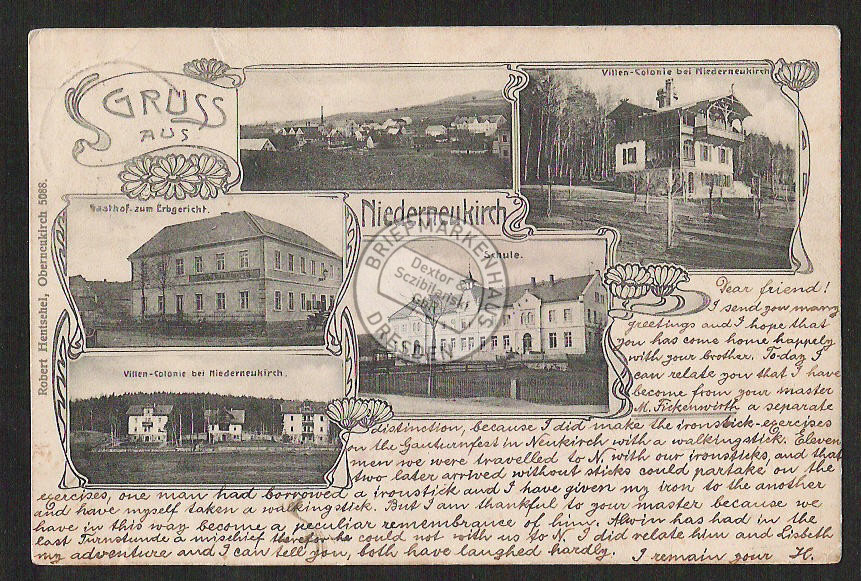 GRUSS
AUS
Villen-Colonie bei Niederneukirch
Gasthof zum Erbgericht.
Niederneukirch
Schule.
Villen-Colonie bei Niederneukirch.
Robert Hentschel, Oberneukirch 5088.
BRIEFMARKENHAUS
Dextor &
Sczibilanski
GbR
DRESDEN
Dear friend!
I send you many
greetings and I hope that
you has come home happely
with your brother. Today I
can relate you that I have
become from your master
M. Fickenwirth a separate
distinction, because I did make the ironstick-exercises
on the Gauturnfest in Neukirch with a walkingstick. Eleven
men we were travelled to N. with our ironsticks, and that
two later arrived without sticks could partake on the
exercises, one man had borrowed a ironstick and I have given my iron to the another
and have myself taken a walkingstick. But I am thankful to your master because we
have in this way become a peculiar remembrance of him. Alwin has had in the
last Turnstunde a mischief therefor he could not with us to N. I did relate him and Lisbeth
my adventure and I can tell you, both have laughed hardly. I remain your H.